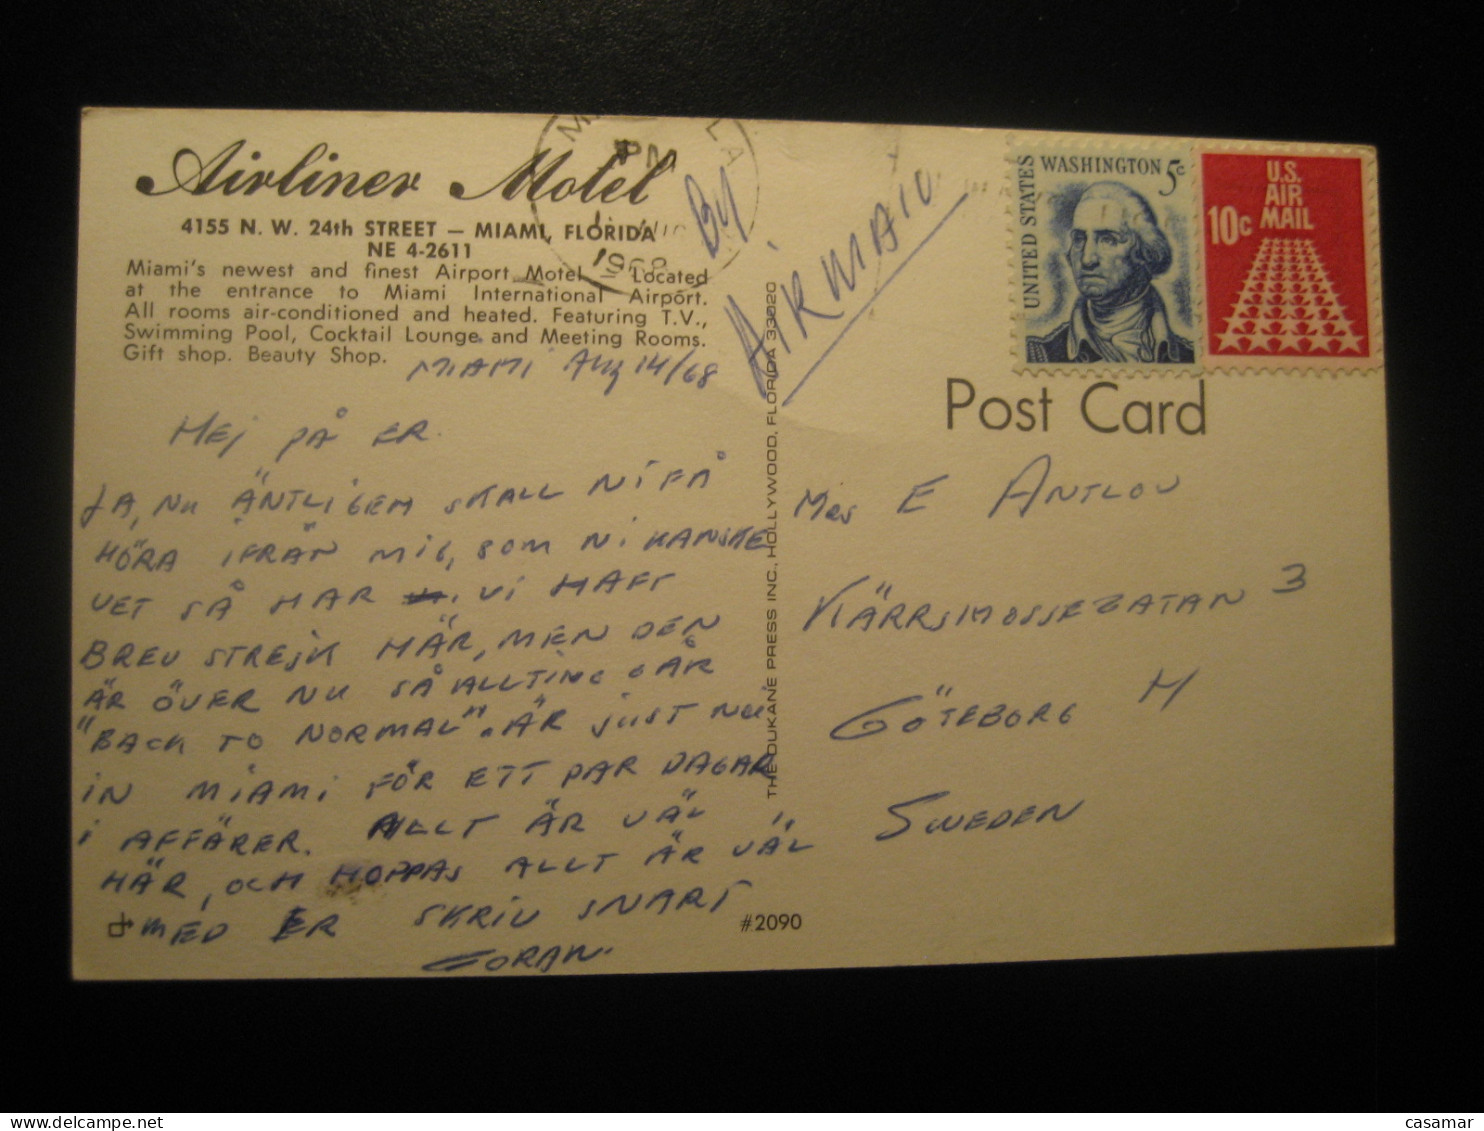 Airliner Motel
4155 N. W. 24th STREET — MIAMI, FLORIDA
NE 4-2611
Miami's newest and finest Airport Motel Located
at the entrance to Miami International Airport.
All rooms air-conditioned and heated. Featuring T.V.,
Swimming Pool, Cocktail Lounge and Meeting Rooms.
Gift shop. Beauty Shop.
MIAMI Aug 14/68
HEJ PÅ ER.
JA, NU ÄNTLIGEN SKALL NI FÅ
HÖRA IFRÅN MIG, SOM NI KANSKE
VET SÅ HAR VI HAFT
BREV STREJK HÄR, MEN DEN
ÄR ÖVER NU SÅ ALLTING ÄR
"BACK TO NORMAL". ÄR JUST NU
IN MIAMI FÖR ETT PAR DAGAR
I AFFÄRER. ALLT ÄR VÄL
HÄR, OCH HOPPAS ALLT ÄR VÄL
MED ER SKRIV SNART
GORAN.
#2090
THE DUKANE PRESS INC., HOLLYWOOD, FLORIDA 33020
PM
1968
By
AIRMAIL
UNITED STATES
WASHINGTON 5c
U.S.
AIR
MAIL
10c
Post Card
Mrs E ANTLOV
KÄRRSMOSSEGATAN 3
GÖTEBORG H
SWEDEN
casamar